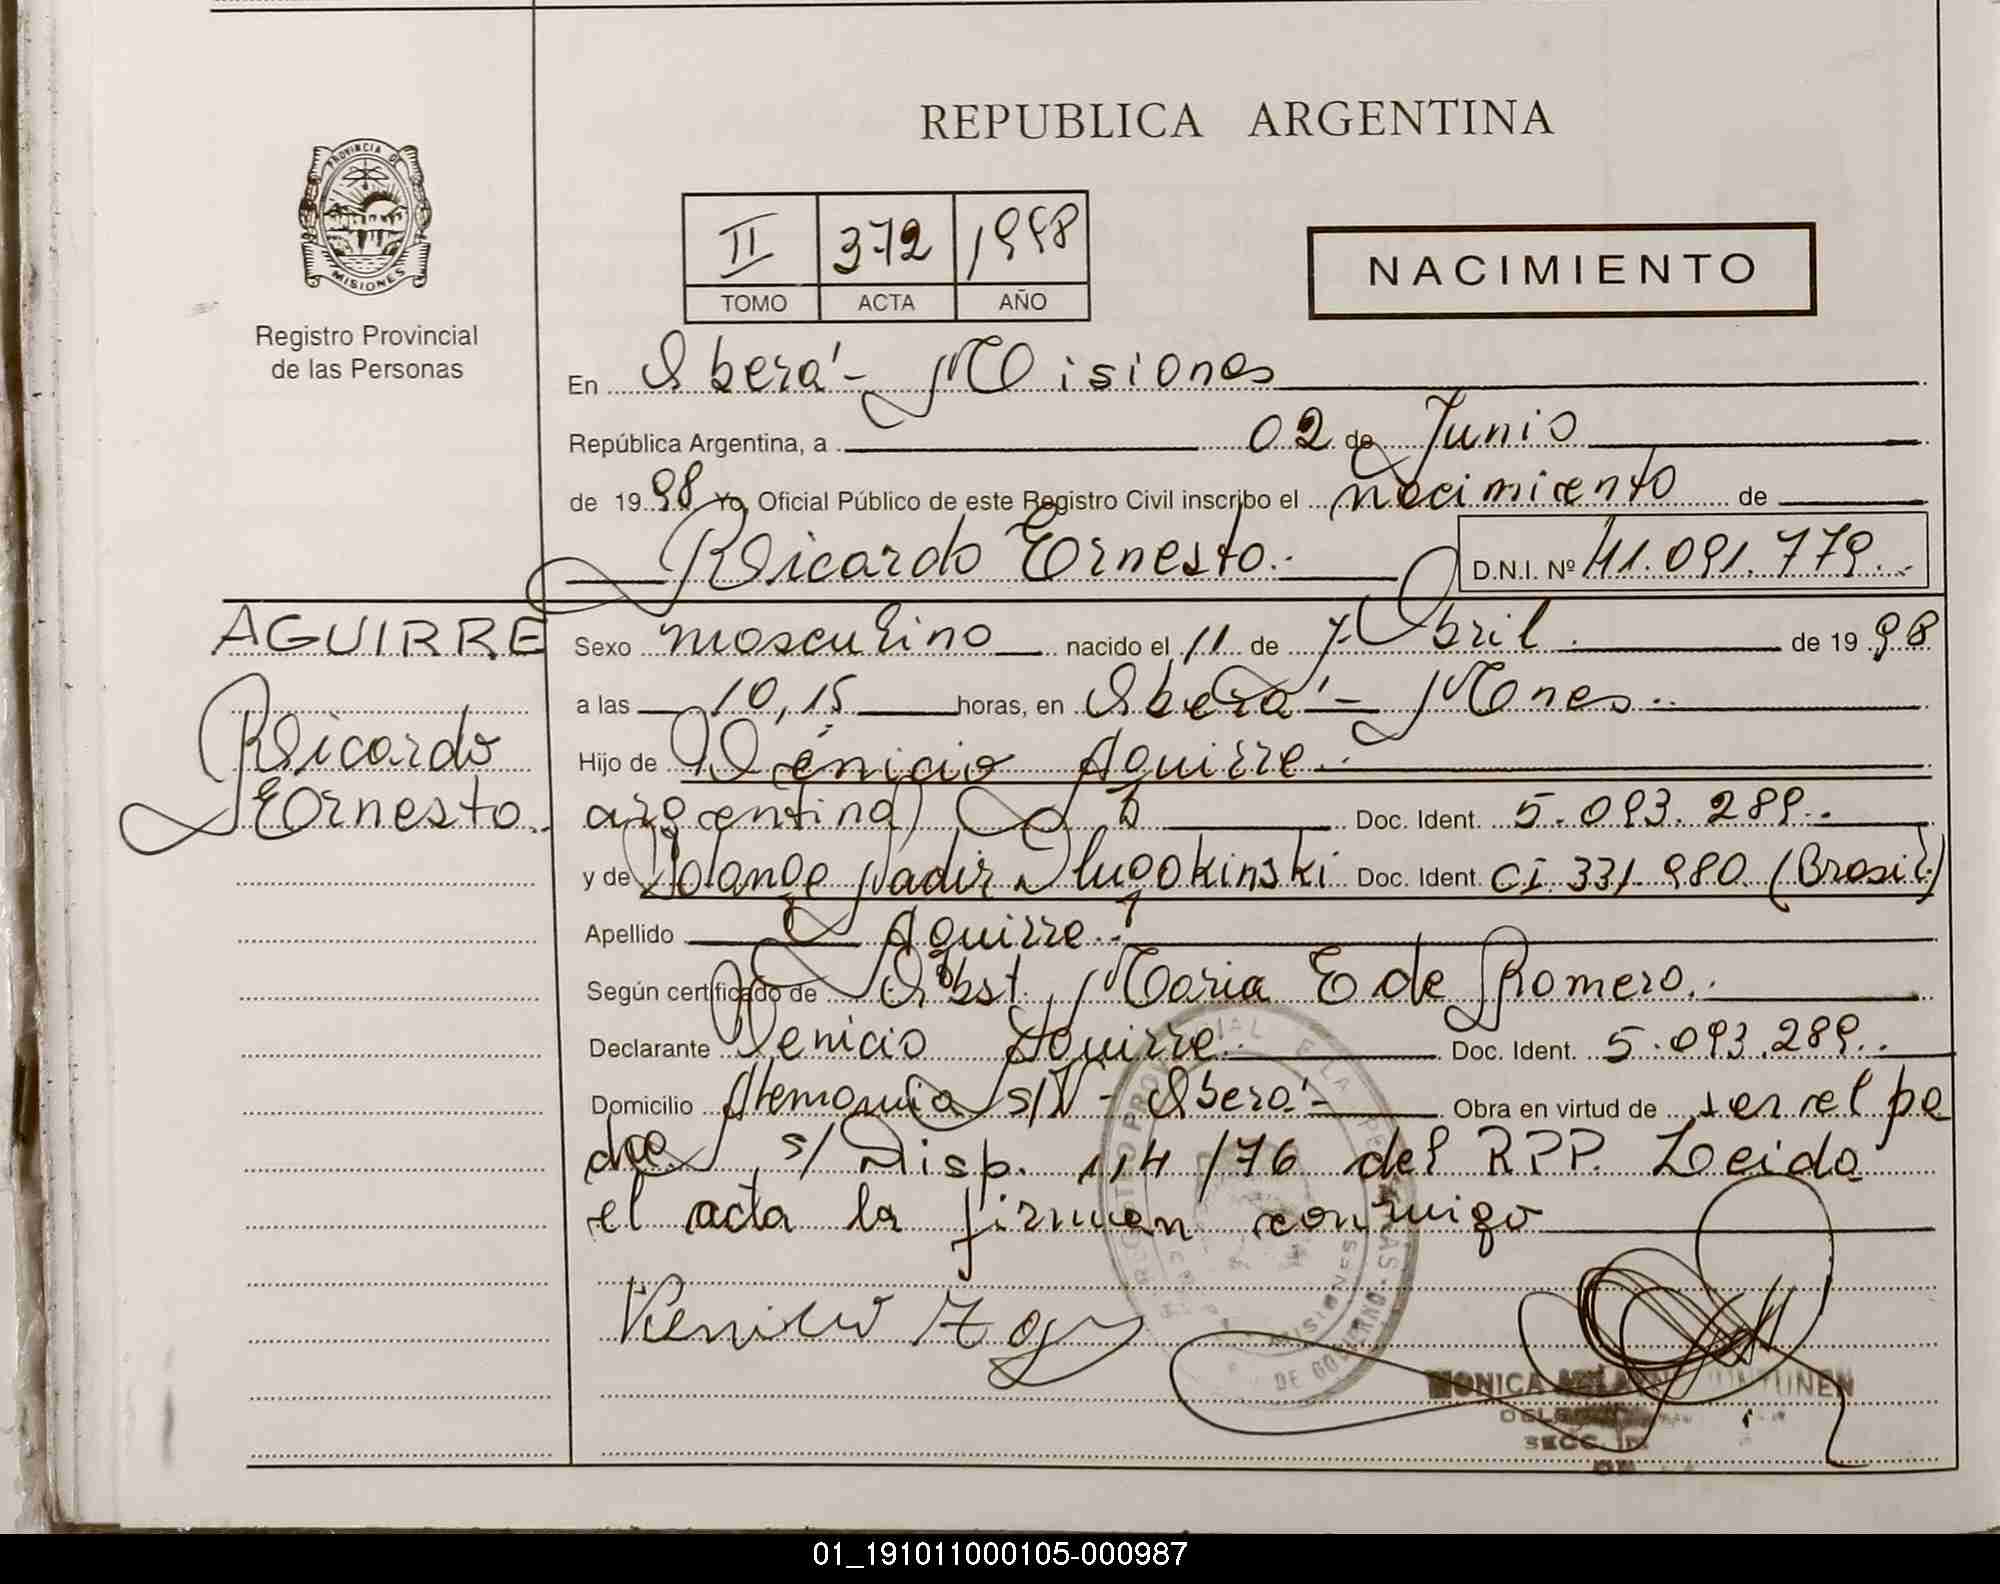 REPUBLICA ARGENTINA
PROVINCIA DE
MISIONES
Registro Provincial
de las Personas
II 372 1998
TOMO ACTA AÑO
NACIMIENTO
En Oberá - Misiones
República Argentina, a 02 de Junio
de 19 98 Yo, Oficial Público de este Registro Civil inscribo el nacimiento de
Ricardo Ernesto.- D.N.I. Nº 41.091.779.-
AGUIRRE
Ricardo
Ernesto.-
Sexo masculino nacido el 11 de Abril. de 19 98
a las 10,15 horas, en Oberá - Mnes.-
Hijo de Aguirre.-
argentino Doc. Ident. 5.093.289.-
y de Doc. Ident. CI 331.980 (Brasil)
Apellido Aguirre.-
Según certificado de Obst. Maria E de Romero.-
Declarante Aguirre.- Doc. Ident. 5.093.289.-
Domicilio Alemania s/N - Oberá - Obra en virtud de ser el pa
dre s/ Disp. 114/76 del RPP. Leida
el acta la firman conmigo
REGISTRO PROVINCIAL DE LAS PERSONAS
MISIONES
DE GOBIERNO
MONICA
SECC.
01_191011000105-000987